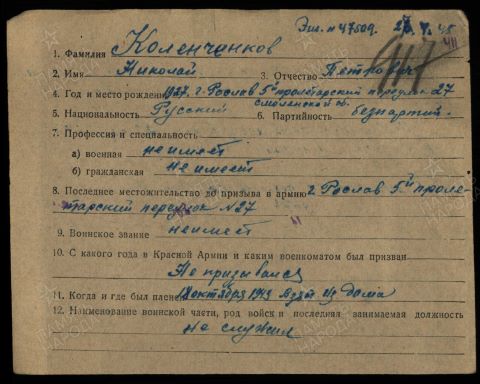 Эш. № 47509.
1. Фамилия Коленчанков
2. Имя Николай 3. Отчество Петрович
4. Год и место рождения 1927. г. Рослав 5й пролетарский переулок 27
Смоленской об.
5. Национальность Русский 6. Партийность безпартий.
7. Профессия и специальность
а) военная не имеет
б) гражданская не имеет
8. Последнее местожительство до призыва в армию г Рослав 5й проле-
тарский переулок №27
9. Воинское звание не имеет
10. С какого года в Красной Армии и каким военкоматом был призван
Не призывался
11. Когда и где был пленен 18 октября 1943 взят из дома
12. Наименование воинской части, род войск и последняя занимаемая должность
не служил